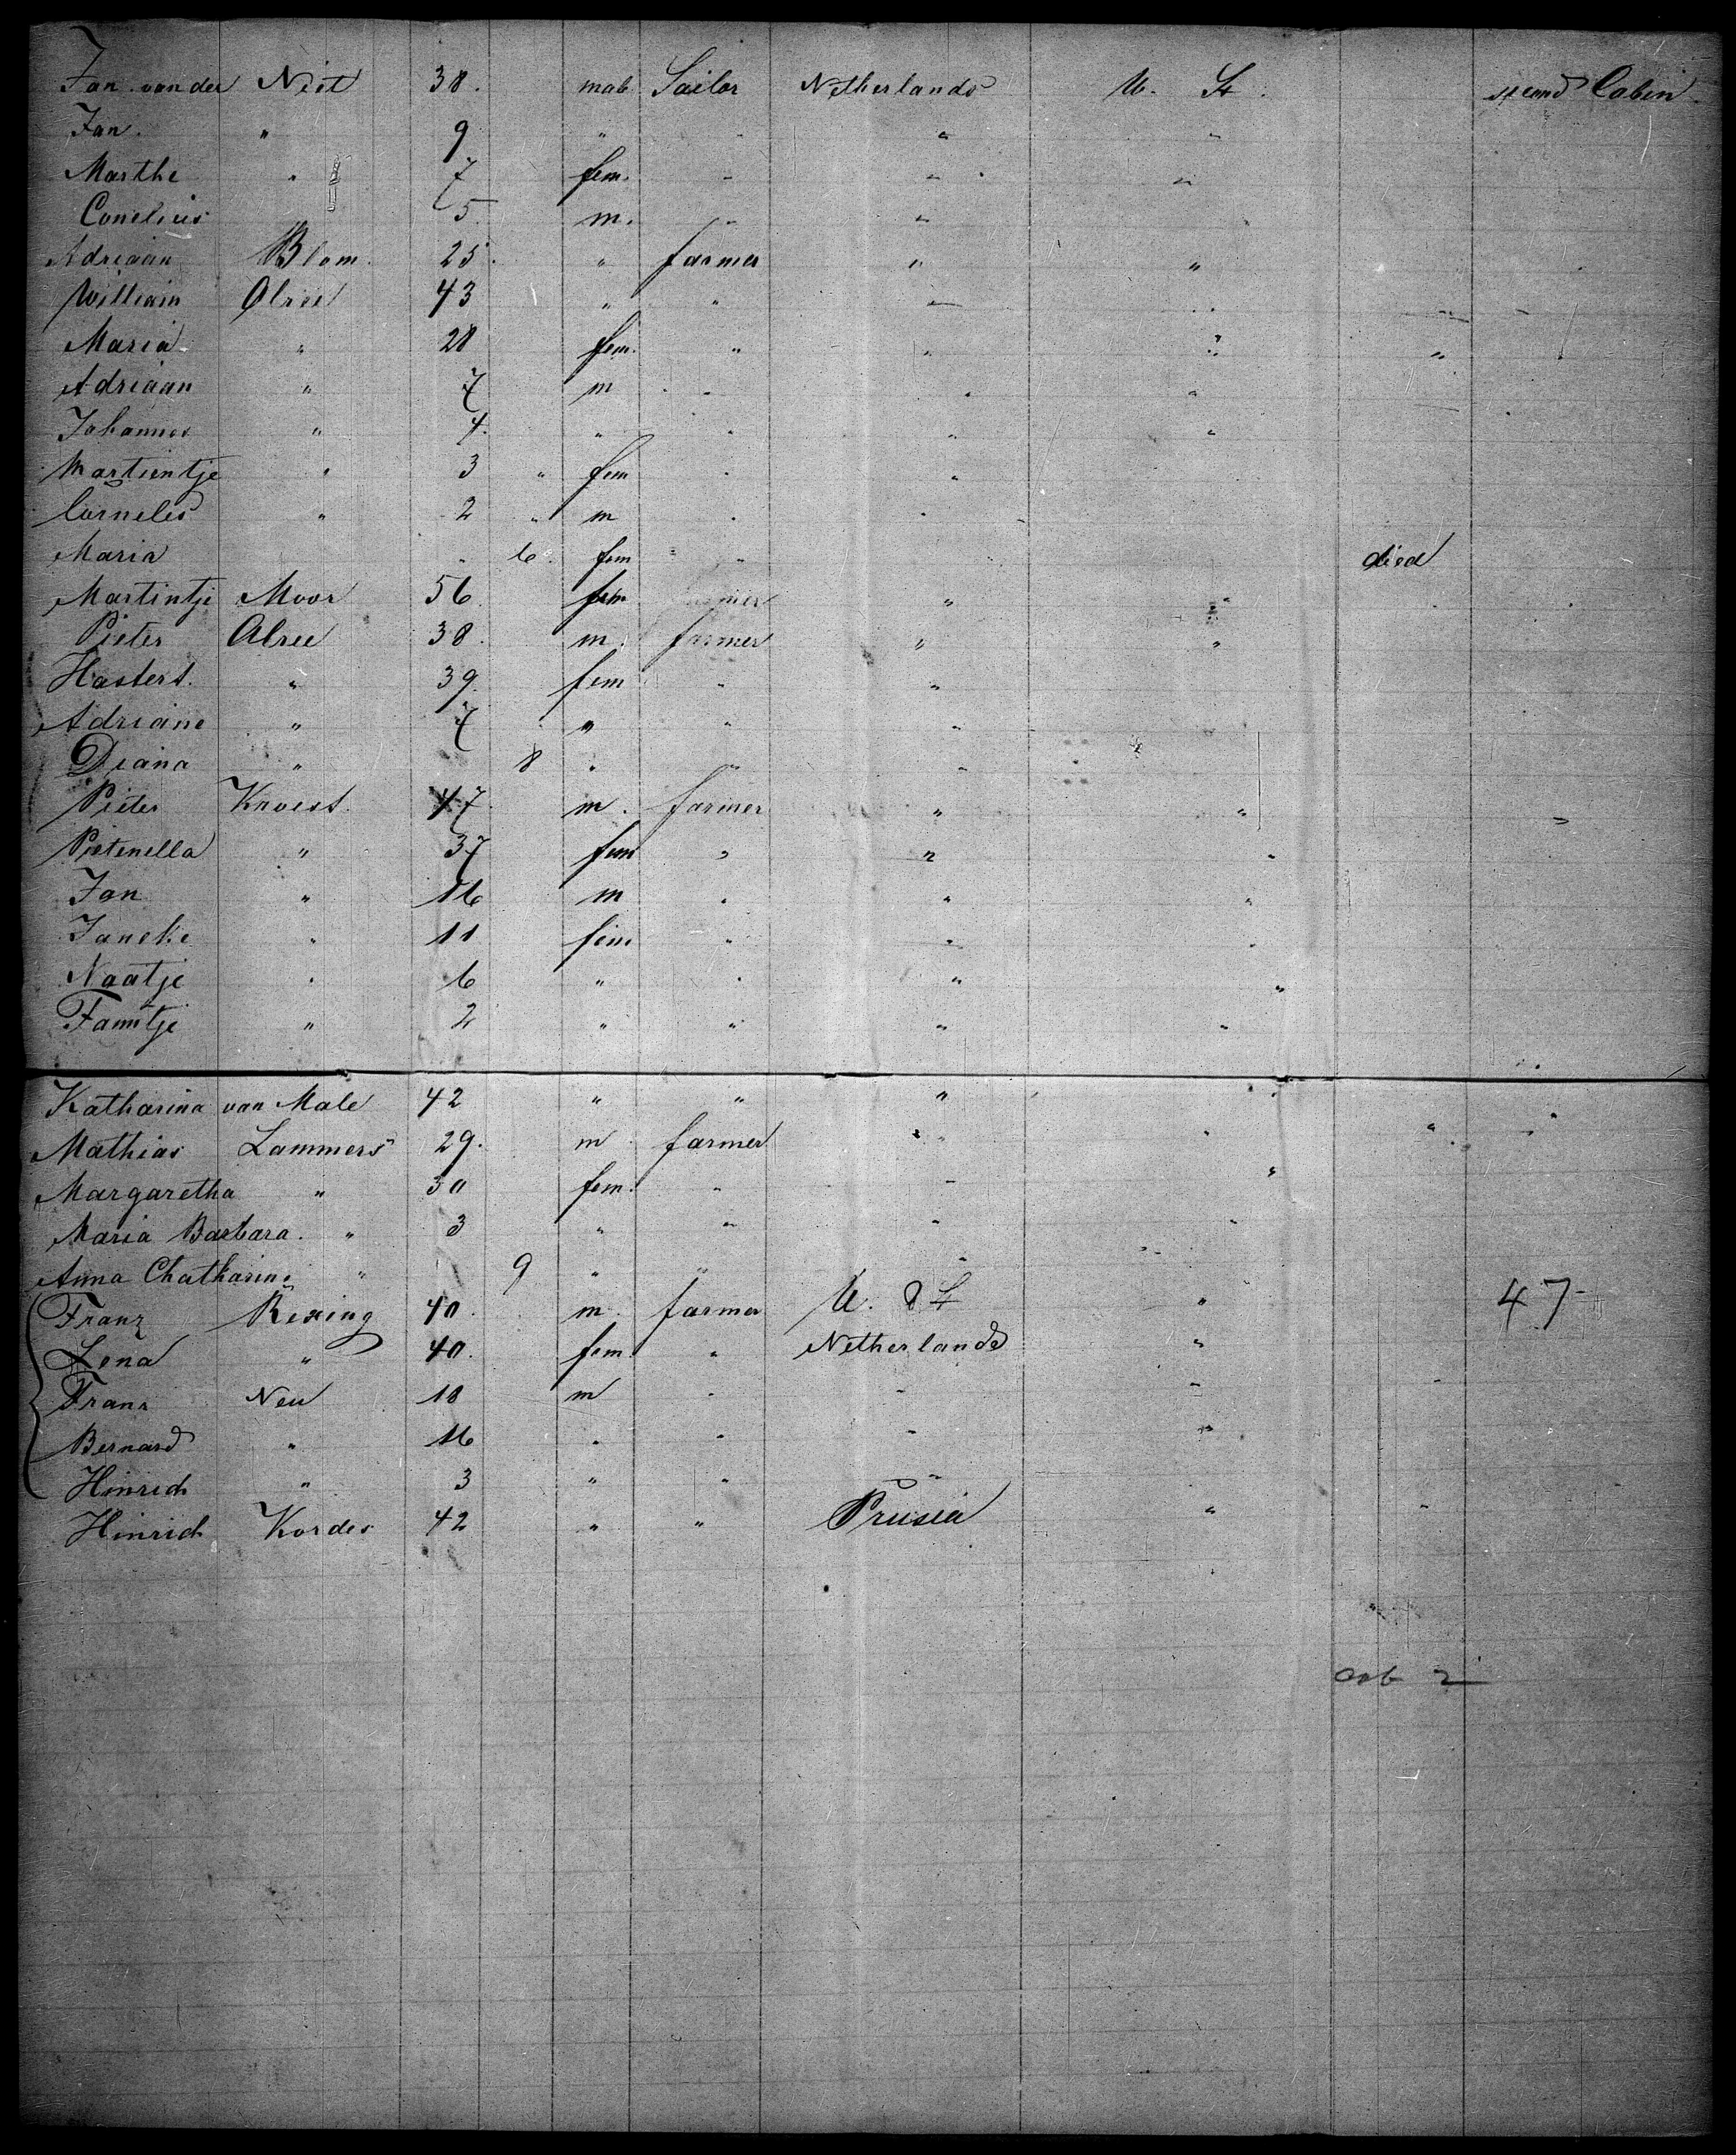 Jan van der Nist 38. male Sailor Netherlands U. St. second Cabin.
Jan. " 9 " " " "
Marthe " 7 fem. " " "
Conelius 5. m. " "
Adriaan Blom. 25. " farmer " "
William Olree 43 " " "
Maria " 28 fem. " " " "
Adriaan " 7 m " " "
Johannes " 4. " " " "
Martientje " 3 " fem " "
Cornelis " 2 " m " "
Maria " 6. fem " died
Martintje Moor 56. fem farmer " "
Pieter Olree 38. m. farmer " "
Hastert. " 39. fem " "
Adriane " 7 " " "
Diana " 8 " " "
Pieter Kroest. 47. m. farmer " "
Pietenella " 37 fem " " "
Jan " 16 m " " "
Janeke " 11 fem " " "
Naatje " 6 " " " "
Famtje " 2 " " " "
Katharina van Male 42 " " " "
Mathias Lammers 29. m farmer " " " "
Margaretha " 30 fem. " " "
Maria Barbara. " 3 " " " "
Anna Chatharine " 9 " " "
Franz Rexing 40. m. farmer U. St " 47
Lena " 40. fem. " Netherlands "
Franz Neu 18 m " " " "
Bernard " 16 " " " "
Hinrich " 3 " " "
Hinrich Kordes 42 " " Prusia " "